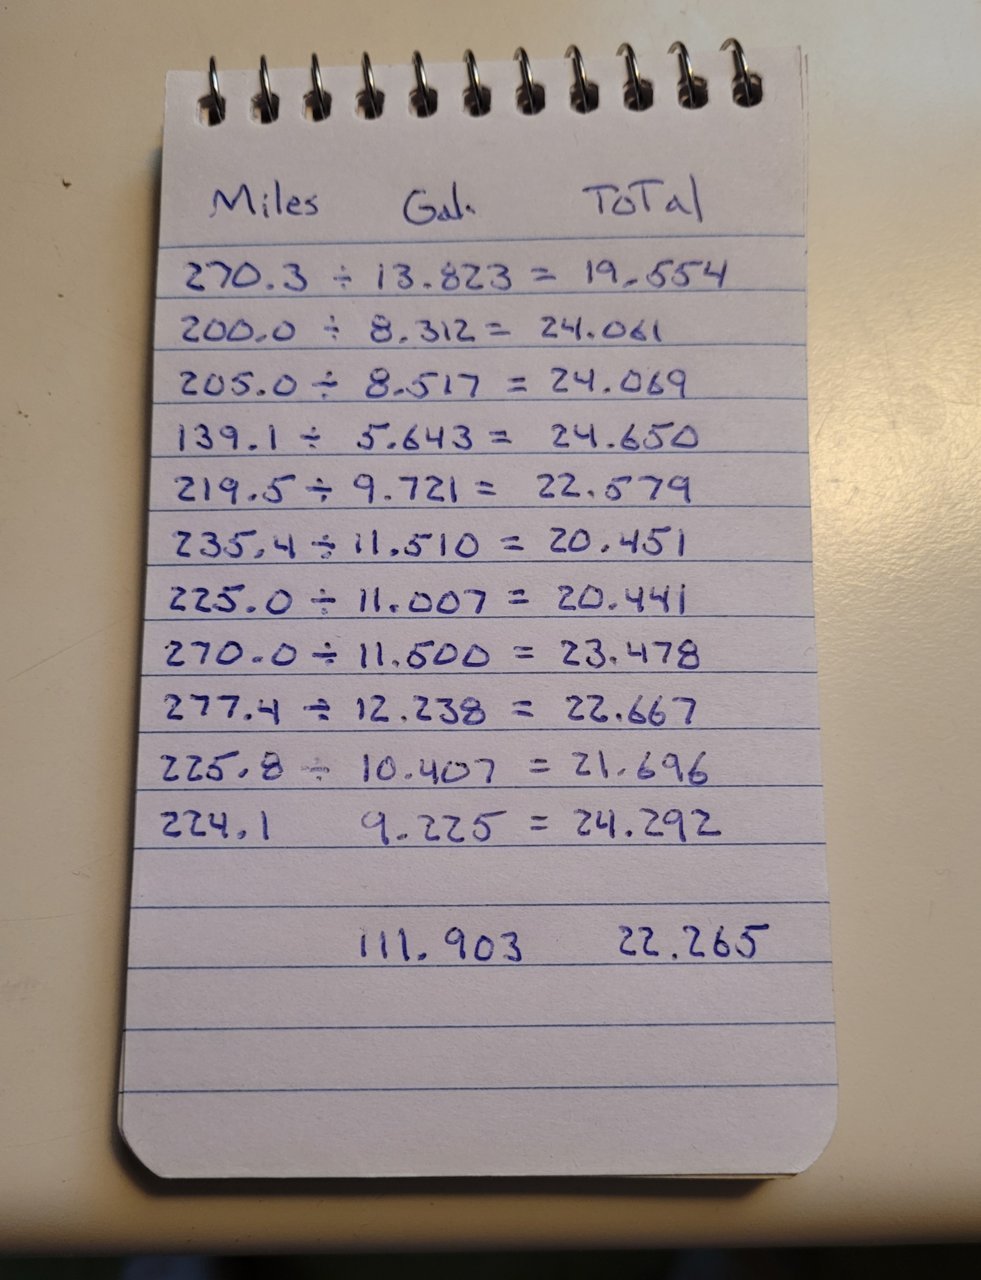 Miles Gal. ToTal
270.3 ÷ 13.823 = 19.554
200.0 ÷ 8.312 = 24.061
205.0 ÷ 8.517 = 24.069
139.1 ÷ 5.643 = 24.650
219.5 ÷ 9.721 = 22.579
235.4 ÷ 11.510 = 20.451
225.0 ÷ 11.007 = 20.441
270.0 ÷ 11.500 = 23.478
277.4 ÷ 12.238 = 22.667
225.8 ÷ 10.407 = 21.696
224.1 9.225 = 24.292
111.903 22.265